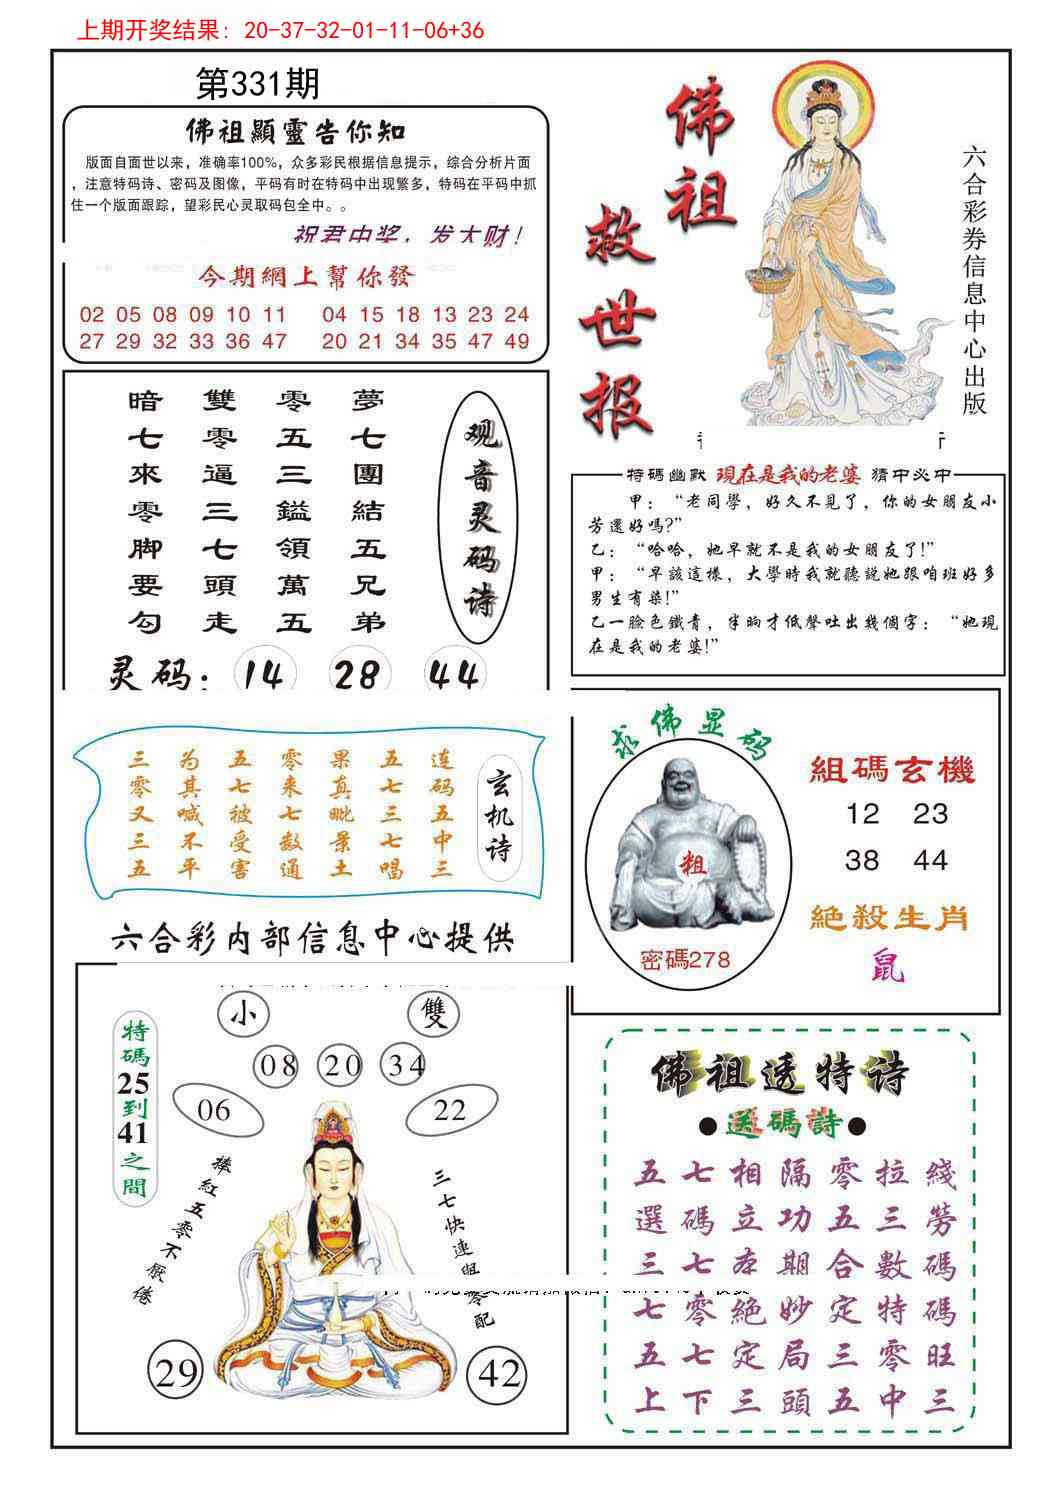 上期开奖结果: 20-37-32-01-11-06+36
第331期
佛祖顯靈告你知
版面自面世以来，准确率100%，众多彩民根据信息提示，综合分析片面
，注意特码诗、密码及图像，平码有时在特码中出现繁多，特码在平码中抓
住一个版面跟踪，望彩民心灵取码包全中。。
祝君中奖，发大财！
今期網上幫你發
02 05 08 09 10 11 04 15 18 13 23 24
27 29 32 33 36 47 20 21 34 35 47 49
佛祖
救世报
六合彩券信息中心出版
观音灵码诗
夢七團結五兄弟
零五三鎰領萬五
雙零逼三七頭走
暗七來零脚要勾
灵码：14 28 44
特碼幽默 現在是我的老婆 猜中必中
甲：“老同學，好久不見了，你的女朋友小
芳還好嗎?”
乙：“哈哈，她早就不是我的女朋友了!”
甲：“早該這樣，大學時我就聽説她跟咱班好多
男生有染!”
乙一臉色鐵青，半晌才低聲吐出幾個字：“她現
在是我的老婆!”
玄机诗
连码五中三
五七三七唱
果真毗景土
零来七数通
五七被受害
为其喊不平
三零又三五
六合彩内部信息中心提供
求佛显码
粗
密碼278
組碼玄機
12 23
38 44
絕殺生肖
鼠
特碼25到41之間
小 雙
08 20 34
06 22
捧紅五零不厭倦
三七快連與零配
29 42
佛祖透特诗
●送碼詩●
五七相隔零拉綫
選碼立功五三勞
三七本期合數碼
七零絕妙定特碼
五七定局三零旺
上下三頭五中三